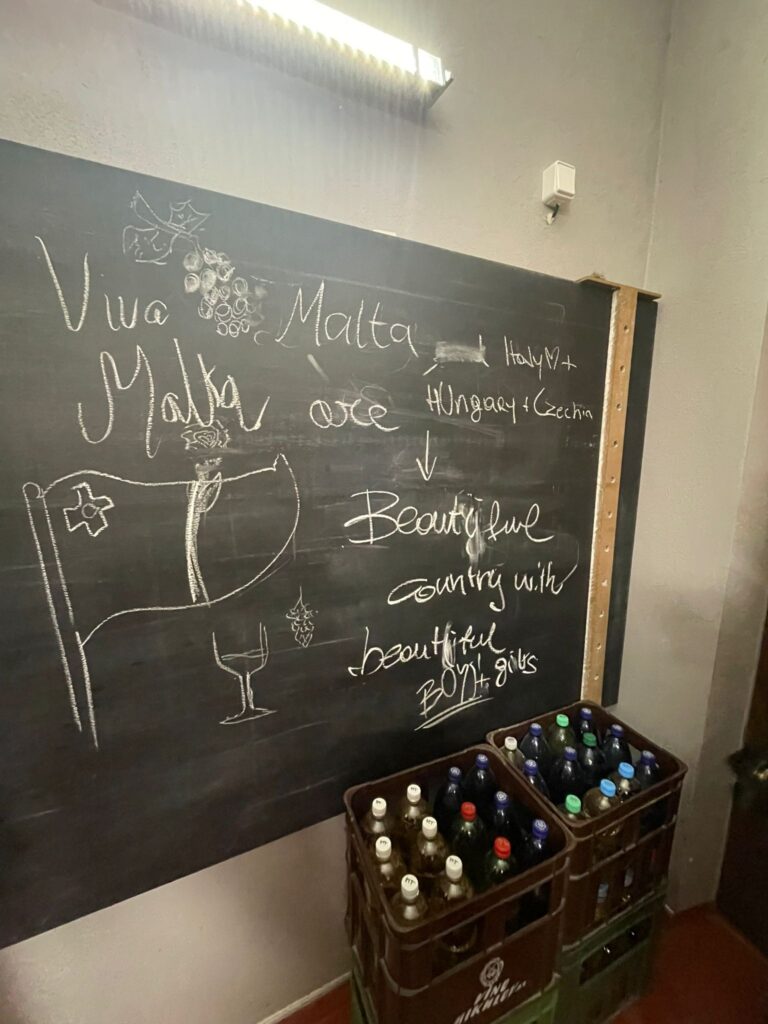 Viva Malta
Italy♡+
Malta are Hungary + Czechia
↓
Beautiful
country with
beautiful
Boys+ girls